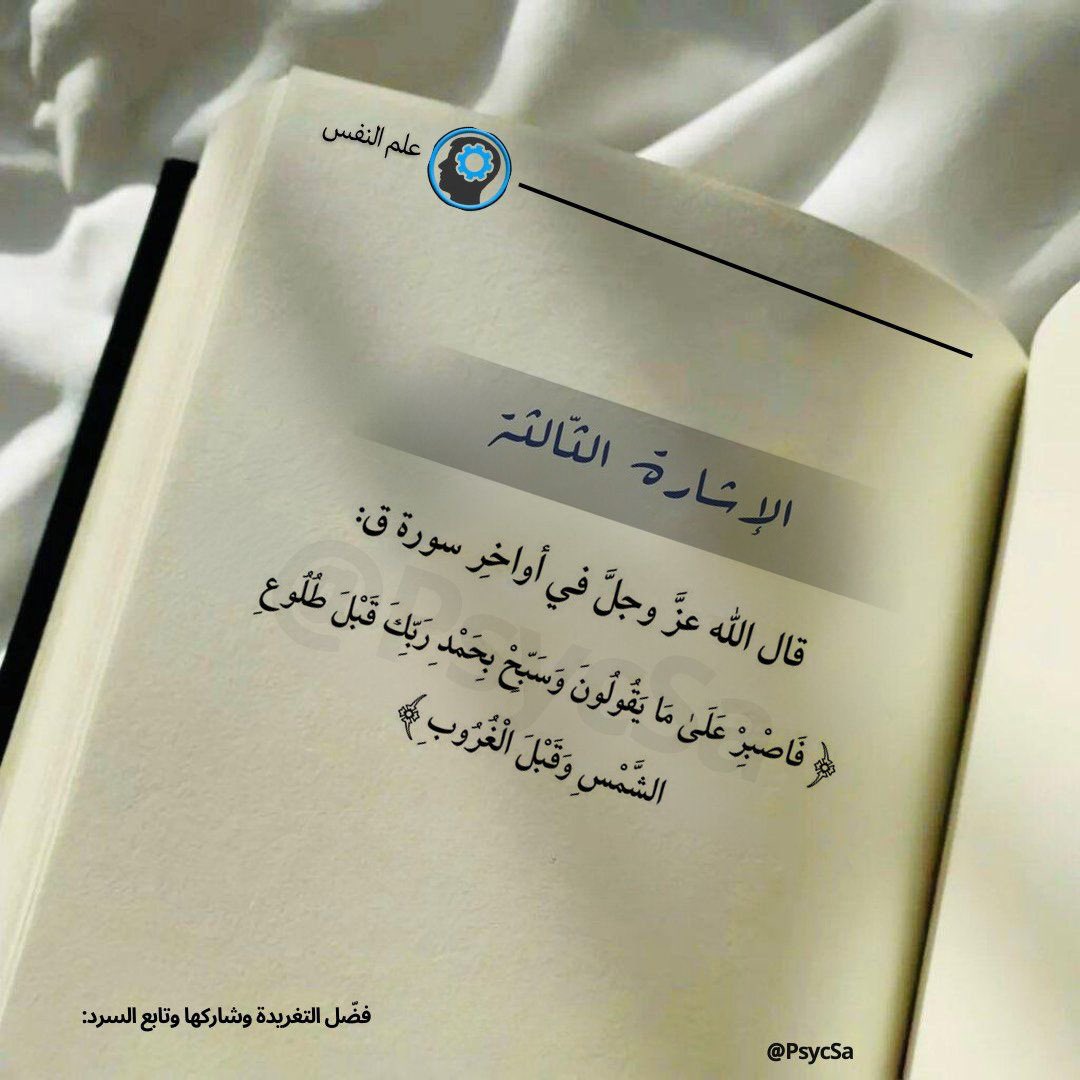 علم النفس
الإشارة الثّالثة
قال الله عزَّ وجلَّ في أواخرِ سورة ق:
﴿فَاصْبِرْ عَلَىٰ مَا يَقُولُونَ وَسَبِّحْ بِحَمْدِ رَبِّكَ قَبْلَ طُلُوعِ
الشَّمْسِ وَقَبْلَ الْغُرُوبِ﴾
@PsycSa
فضّل التغريدة وشاركها وتابع السرد:
@PsycSa